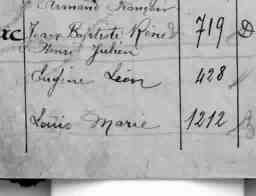 Armand François
ic Jean Baptiste René 719 D
Henri Julien
Eugène Léon 428
Louis Marie 1212